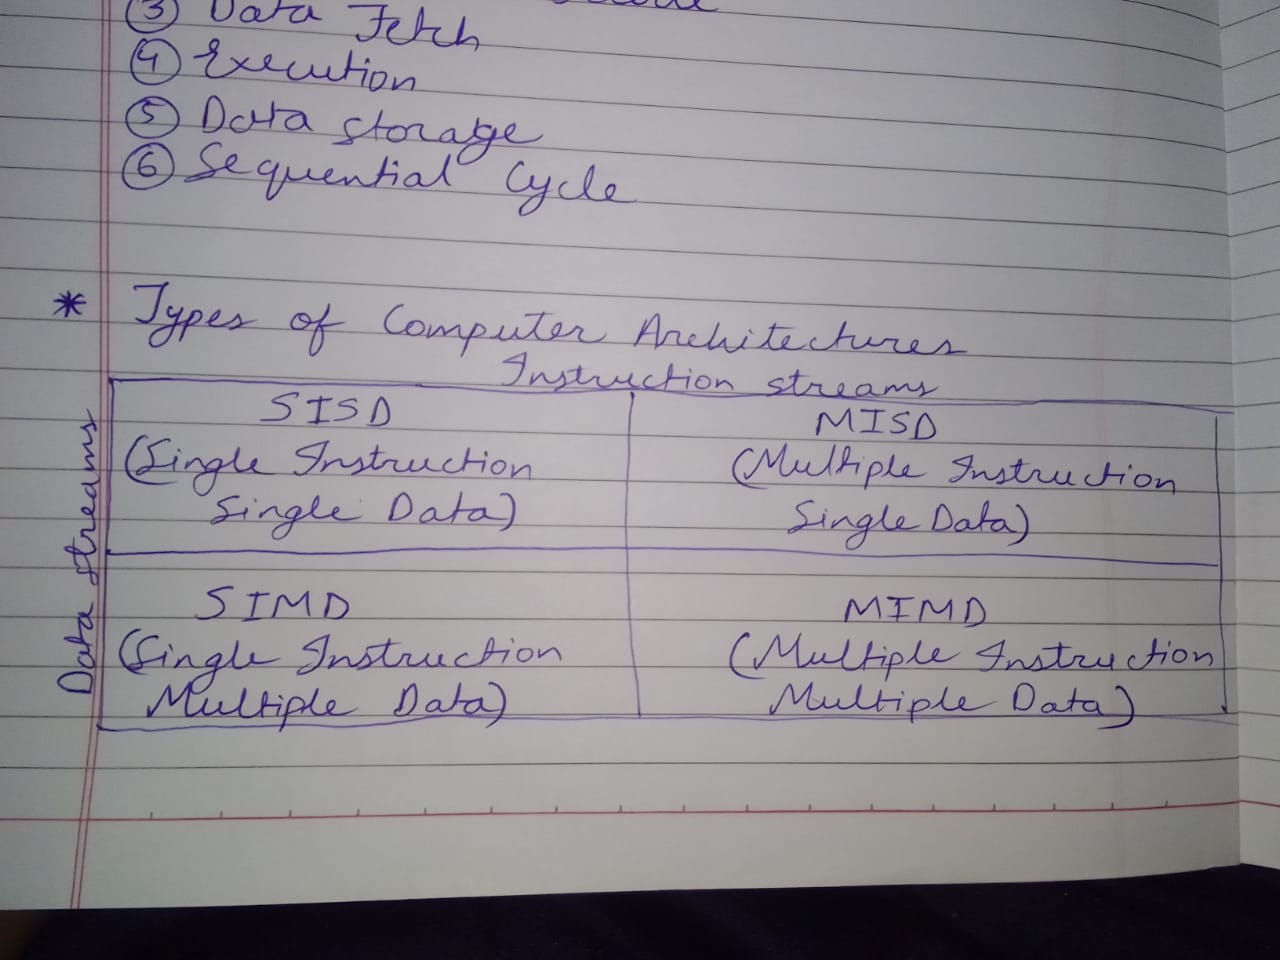 ③ Data Fetch
④ Execution
⑤ Data storage
⑥ Sequential Cycle
* Types of Computer Architectures
Instruction streams
Data streams
SISD
(Single Instruction
Single Data)
MISD
(Multiple Instruction
Single Data)
SIMD
(Single Instruction
Multiple Data)
MIMD
(Multiple Instruction
Multiple Data)